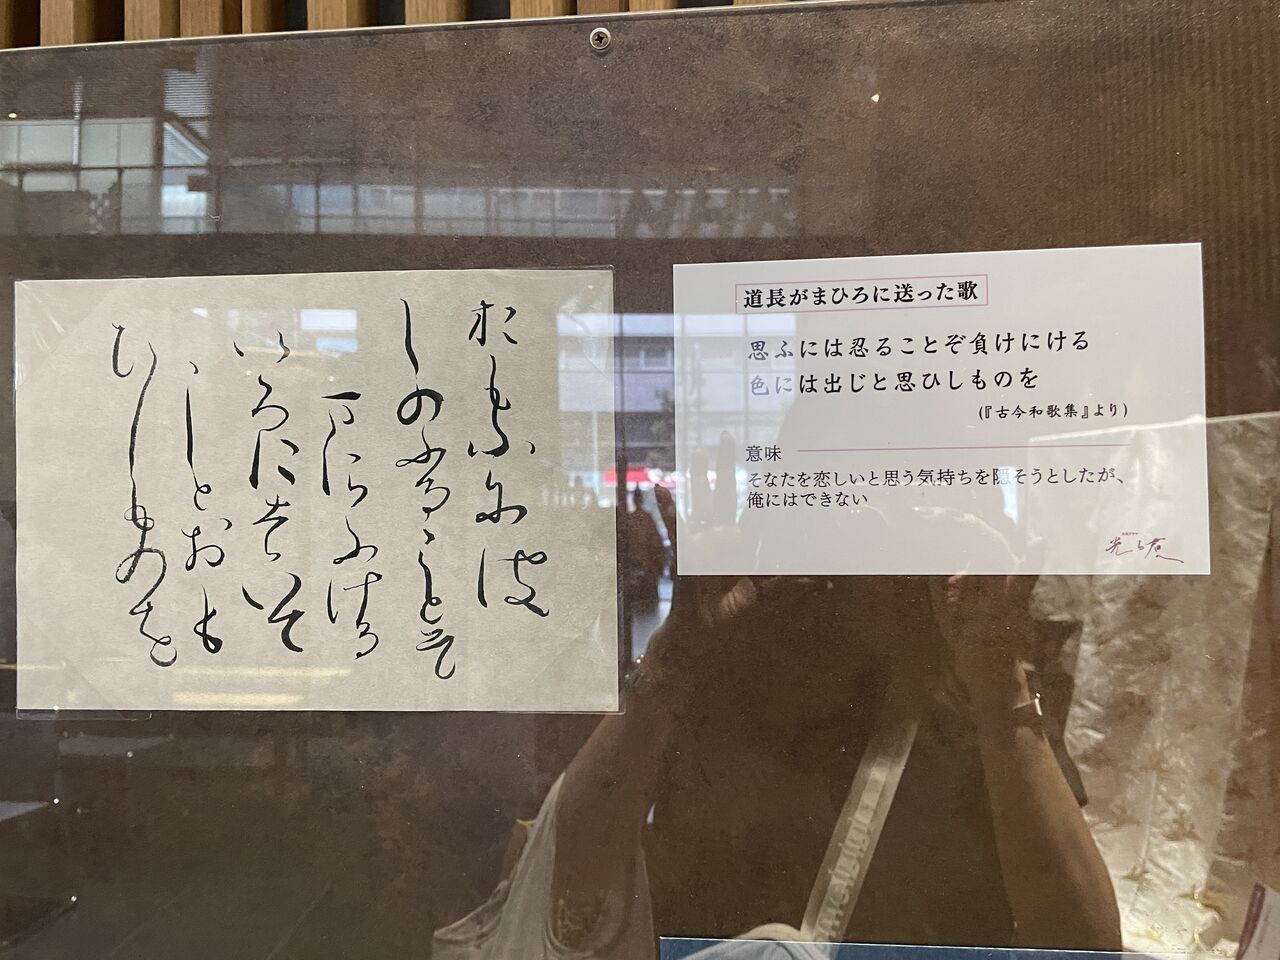 おもふには
しのふることそ
まけにける
いろにはいて
しとおも
ひしものを
道長がまひろに送った歌
思ふには忍ることぞ負けにける
色には出じと思ひしものを
(『古今和歌集』より)
意味
そなたを恋しいと思う気持ちを隠そうとしたが、
俺にはできない
光る君へ